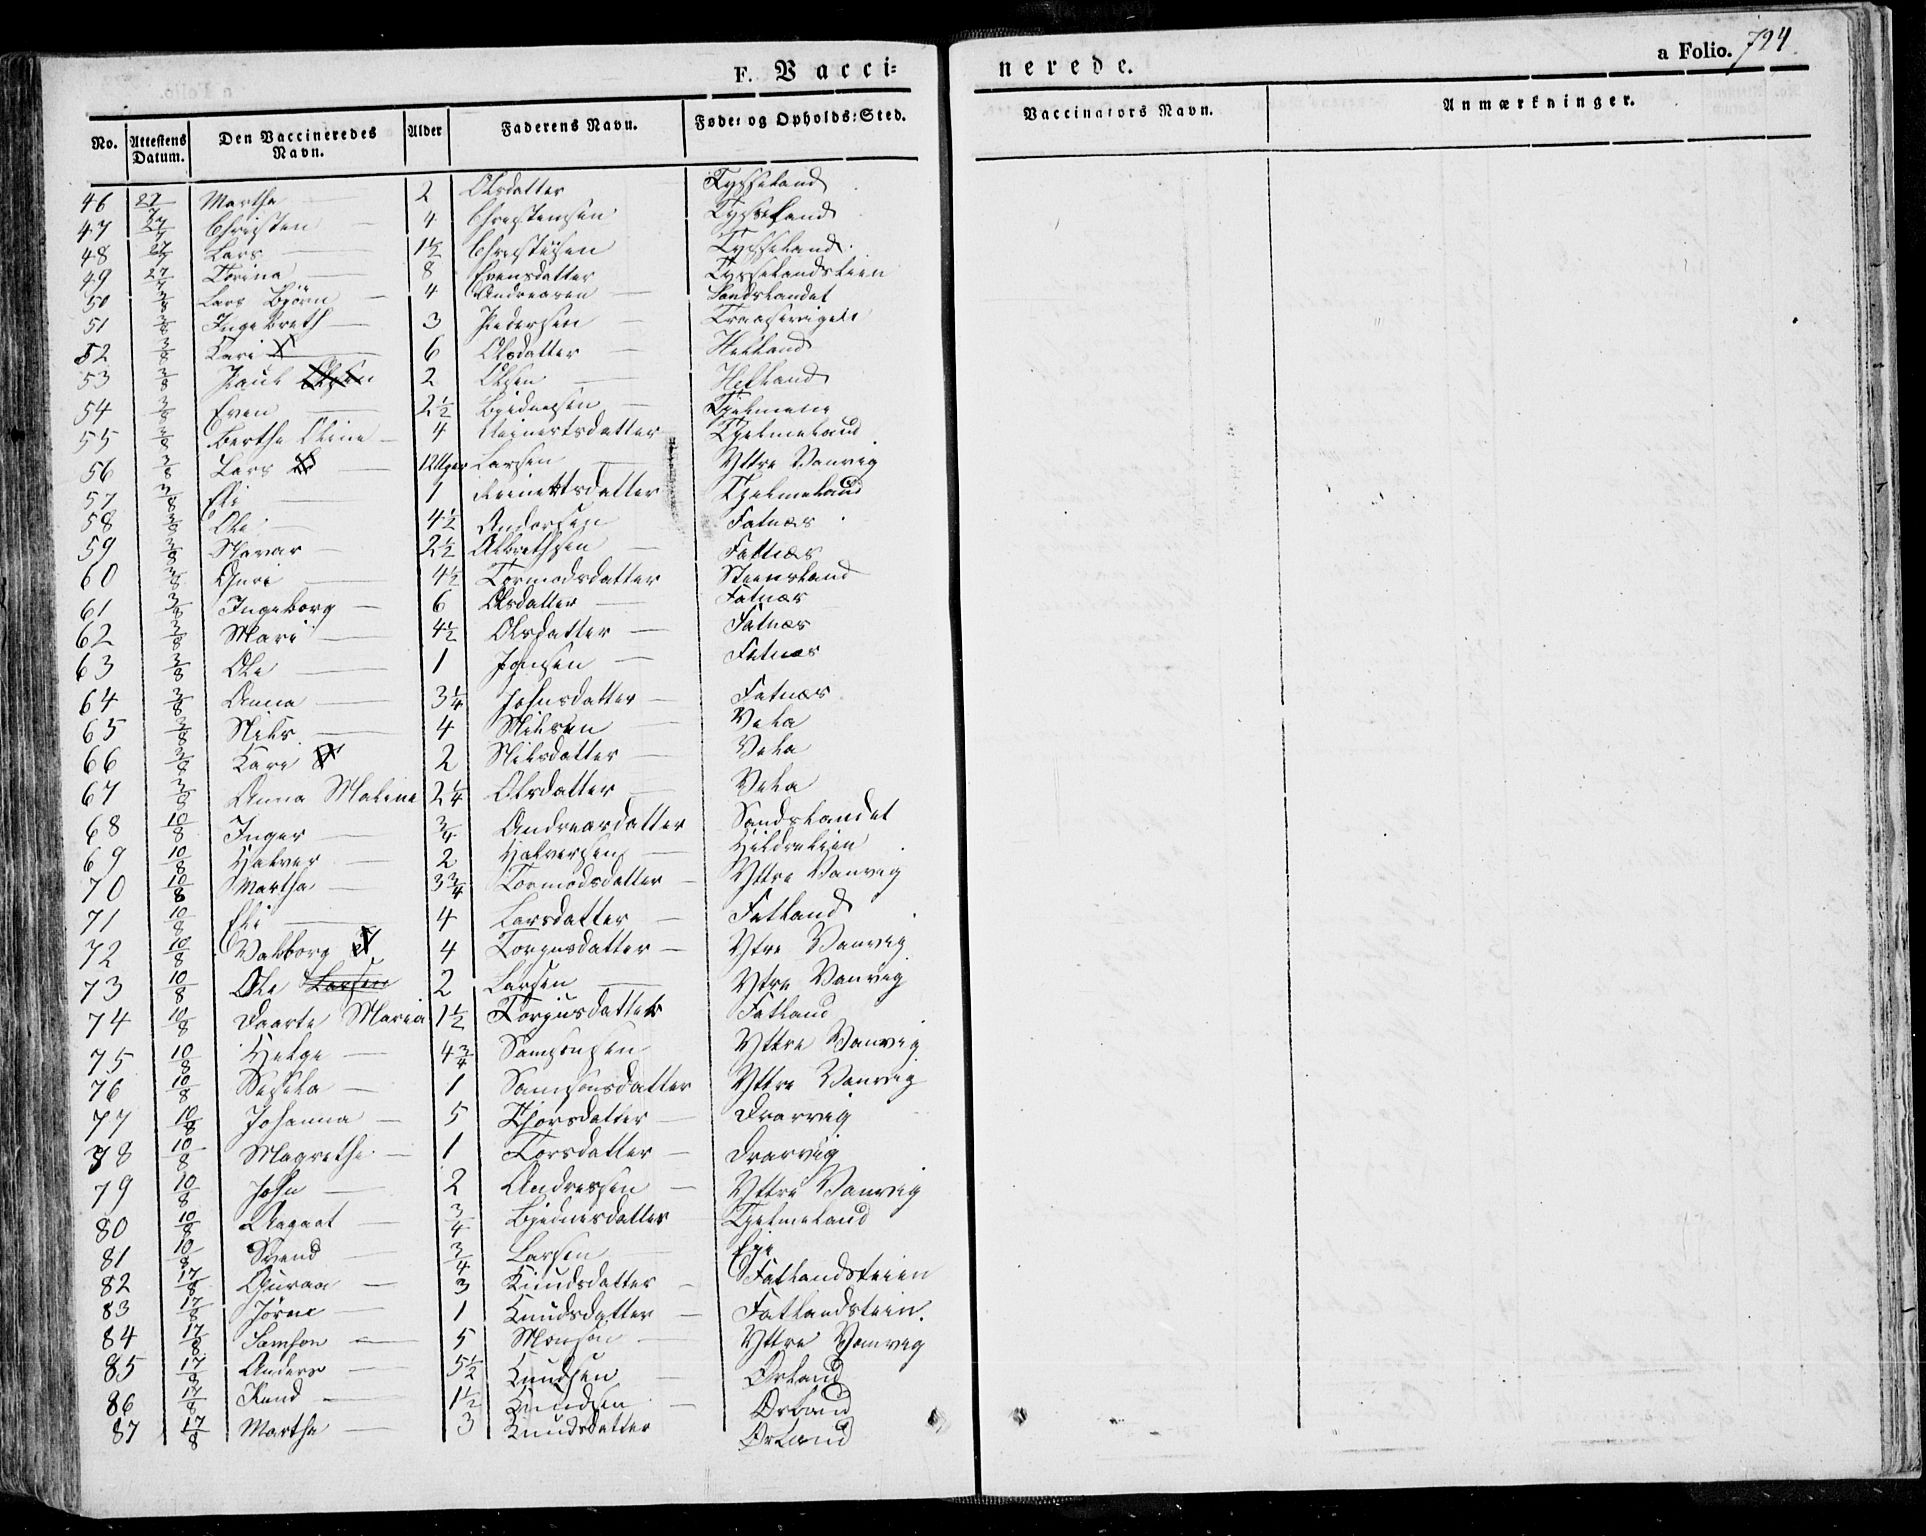 F. Vacci=
nerede.
a Folio. 794
No. Attestens Datum. Den Vaccineredes Navn. Alder Faderens Navn. Føde= og Opholds=Sted. Vaccinators Navn. Anmærkninger.
46 27/7 Martha 2 Olsdatter Tysseland
47 27/7 Christen 4 Christensen Tysseland
48 27/7 Lars 1½ Tysseland
49 27/7 Torina 8 Evensdatter Tysselandsteien
50 3/8 Lars Bjørn 4 Sandslandet
51 3/8 Ingebreth 3 Pedersen
52 3/8 Kari 6 Olsdatter Helland
53 3/8 Paul Olsen 2 Olsen Helland
54 3/8 Even 2½
55 3/8 Berthe Oline 4 Reinertsdatter Tjelmeland
56 3/8 Lars 12 Uger Larsen Yttre Vanvig
57 3/8 Eli 1 Reinertsdatter Tjelmeland
58 3/8 Ole 4½ Andersen Fatnæs
59 3/8 2½ Albrethsen Fatnæs
60 3/8 Guri 4½ Tormodsdatter Steensland
61 3/8 Ingeborg 6 Olsdatter Fatnæs
62 3/8 Mari 4½ Olsdatter Fatnæs
63 3/8 Ole 1 Jonsen Fatnæs
64 3/8 Anna 3¼ Johnsdatter Fatnæs
65 3/8 Nils 4 Nilsen Vela
66 3/8 Kari 2 Nilsdatter Vela
67 3/8 Anna Malene 2¼ Olsdatter Vela
68 10/8 Inger ¾ Andreasdatter Sandslandet
69 10/8 Halver 2 Halversen Hildreleien
70 10/8 Martha 3¾ Tormodsdatter Yttre Vanvig
71 10/8 Eli 4 Larsdatter Fatland
72 10/8 Valborg 4 Torgusdatter Ytre Vanvig
73 10/8 Ole Larsen 2 Larsen Ytre Vanvig
74 10/8 Daarte Maria 1½ Torgusdatter Fatland
75 10/8 Helge 4¾ Samsonsen Yttre Vanvig
76 10/8 Sisela 1 Samsonsdatter Yttre Vanvig
77 10/8 Johanna 5 Thorsdatter Drarvig
78 10/8 Magrethe 1 Torsdatter Drarvig
79 10/8 John 2 Andersen Yttre Vanvig
80 10/8 Aagaat ¾ Tjelmeland
81 10/8 Svend ¾ Larsen Eie
82 17/8 Guraa 3 Knudsdatter Fatlandsteien
83 17/8 Jørne 1 Knudsdatter Fatlandstein
84 17/8 Samson 5 Monsen Yttre Vanvig
85 17/8 Anders 5½ Knudsen Ørland
86 17/8 Knud 1½ Knudsen Ørland
87 17/8 Marthe 3 Knudsdatter Ørland